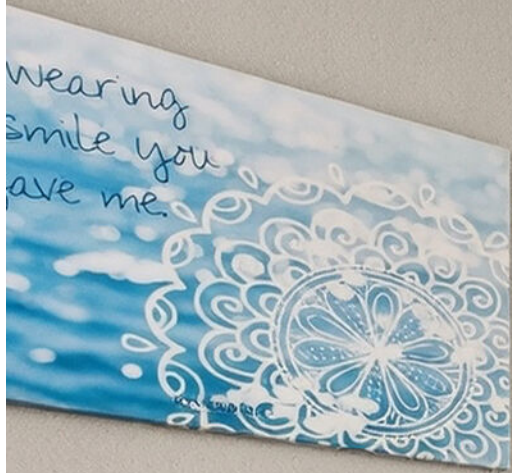 wearing
smile you
ave me.